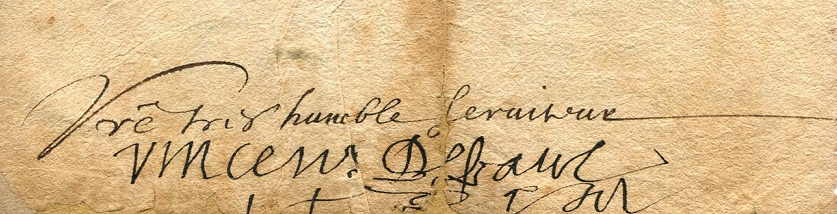 Vrē tres humble seruiteur
Vincent Depaul